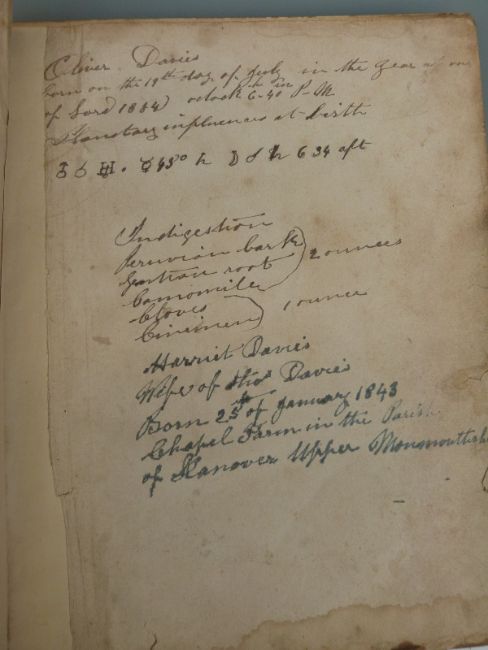 Oliver Davies
born on the 19th day of July in the year of our
of Lord 1864 oclock 6-40 P.M
Planetary influences at birth
♂ ☌ ♅. 45° ♄ ☽ ☌ ♄ 6 34 aft
Indigestion
Peruvian bark
Gentian root
Camomile
2 ounces
Cloves
Cinimen
1 ounce
Harriet Davies
Wife of Thos Davies
Born 25th of January 1843
Chapel Farm in the Parish
of Llanover Upper Monmouthsh